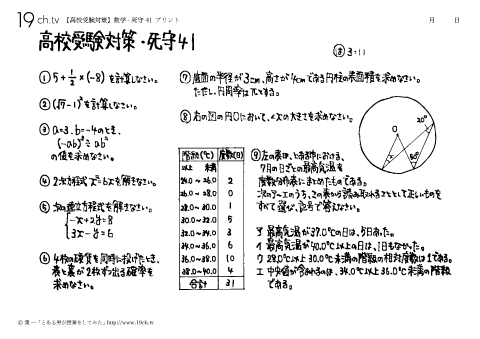 19ch.tv 【高校受験対策】数学・死守41 プリント 月 日
高校受験対策・死守41
㋭ 3:11
① 5+1/2×(-8) を計算しなさい。
② (√7-1)²を計算しなさい。
③ a=3、b=-4のとき、
(-ab)³÷ab²
の値を求めなさい。
④ 2次方程式 x²=6xを解きなさい。
⑤ 次の連立方程式を解きなさい。
-x+2y=8
3x-y=6
⑥ 4枚の硬貨を同時に投げたとき、
表と裏が2枚ずつ出る確率を
求めなさい。
⑦ 底面の半径が3cm、高さが4cmである円柱の表面積を求めなさい。
ただし、円周率はπとする。
⑧ 右の図の円Oにおいて、∠xの大きさを求めなさい。
O
x
20°
階級(℃) 度数(日)
以上 未満
24.0 ~ 26.0 2
26.0 ~ 28.0 0
28.0 ~ 30.0 1
30.0 ~ 32.0 5
32.0 ~ 34.0 3
34.0 ~ 36.0 6
36.0 ~ 38.0 10
38.0 ~ 40.0 4
合計 31
⑨ 左の表は、とある市における、
7月の日ごとの最高気温を
度数分布表にまとめたものである。
次のア~エのうち、この表から読み取れることとして正しいものを
すべて選び、記号で答えなさい。
ア 最高気温が37.0℃の日は、5日あった。
イ 最高気温が40.0℃以上の日は、1日もなかった。
ウ 28.0℃以上30.0℃未満の階級の相対度数は1である。
エ 中央値が含まれるのは、34.0℃以上36.0℃未満の階級
である。
© 葉一「とある男が授業をしてみた」http://www.19ch.tv